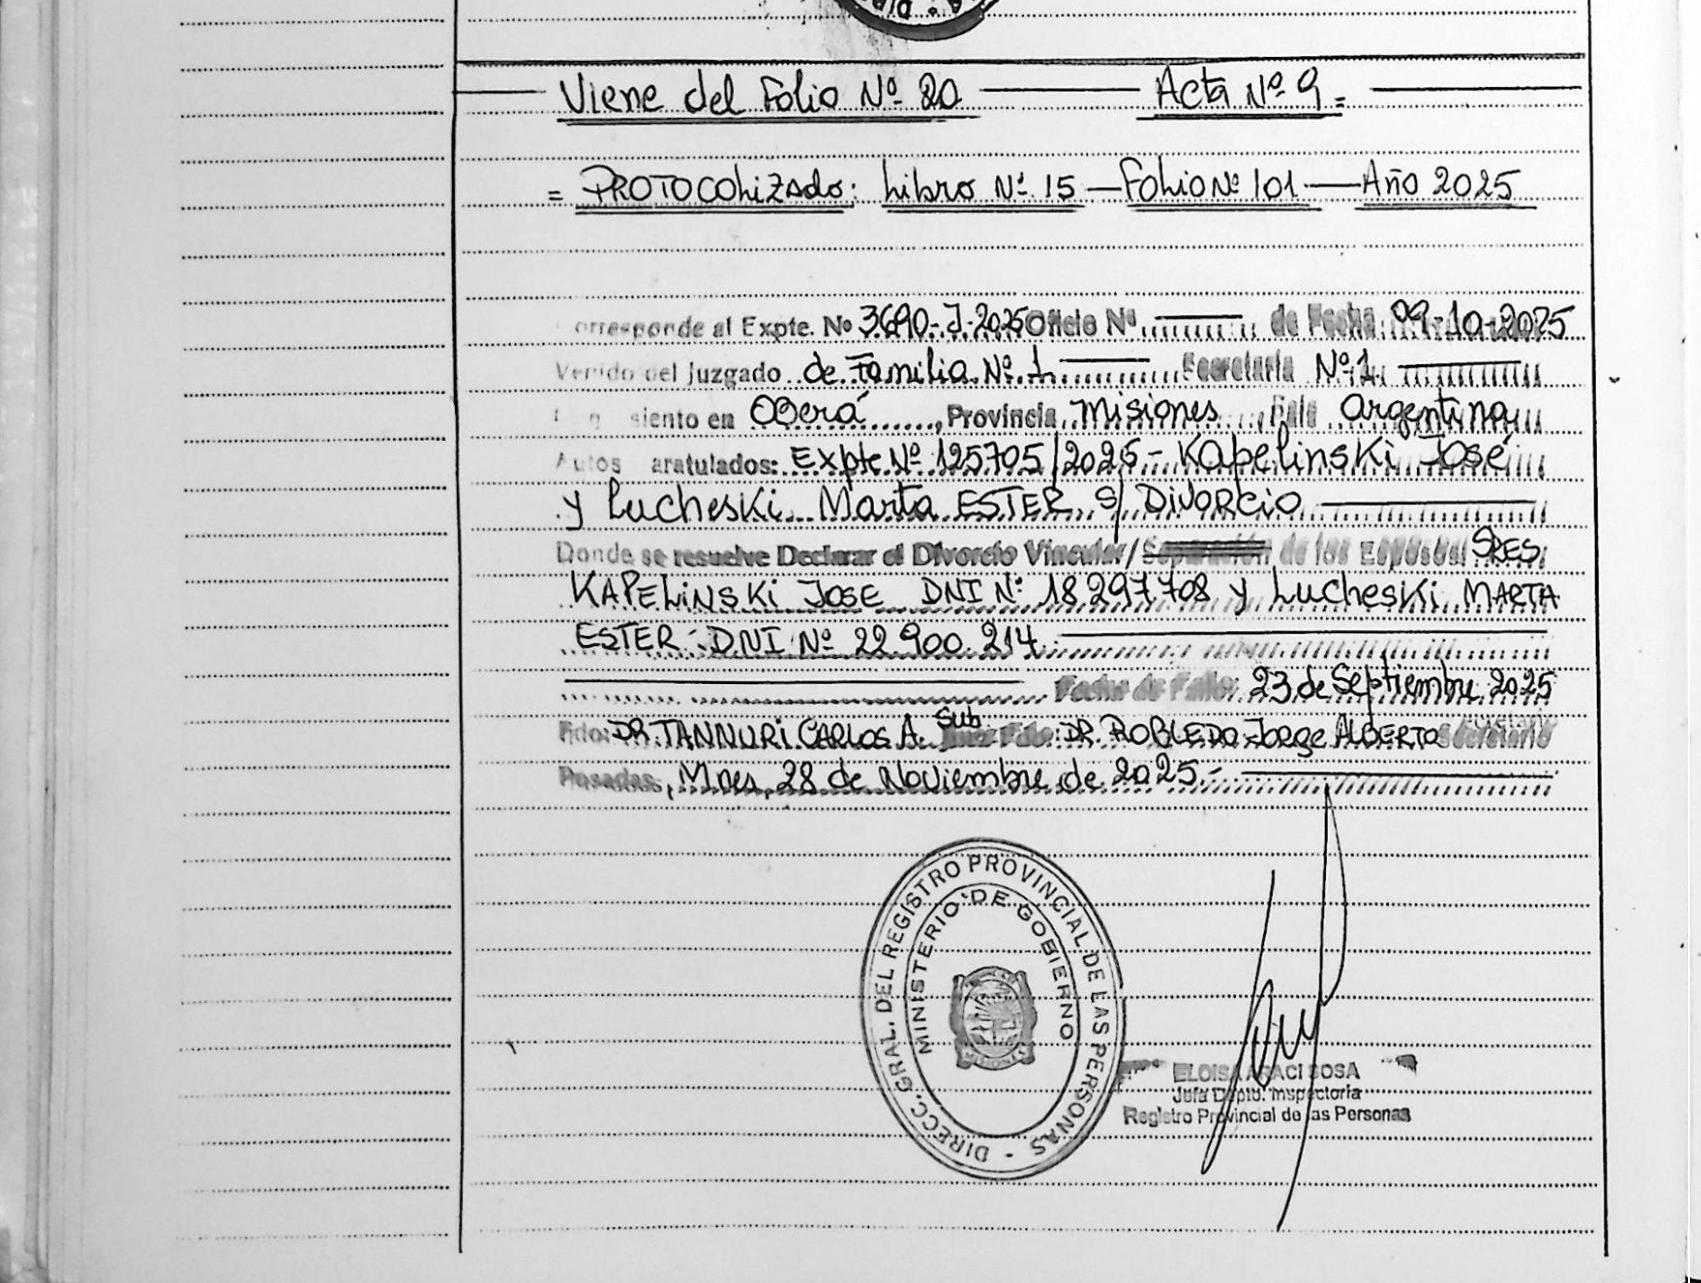 Viene del Folio Nº 20 Acta Nº 9 =
= PROTOCOLIZADO: Libro Nº 15 — Folio Nº 101 — Año 2025
orresponde al Expte. Nº 3690-J-2025 Oficio Nº de Fecha 09-10-2025
Venido del Juzgado de Familia Nº 1 Secretaria Nº 1
siento en Oberá, Provincia Misiones, País Argentina
Autos aratulados: Expte Nº 125705/2025 - Kapelinski José
y Lucheski Marta ESTER S/ DIVORCIO
Donde se resuelve Declarar el Divorcio Vincular/Separación de los Esposos: SRES.
KAPELINSKI JOSE DNI Nº 18 297 708 y Lucheski MARTA
ESTER - DNI Nº 22.900.214
Fecha de Fallo: 23 de Septiembre 2025
Fdo: DR. TANNURI CARLOS A. Juez Fdo: DR. ROBLEDO Jorge ALBERTO Sub Secretario
Posadas, Mnes, 28 de Noviembre de 2025.-
DIRECC. GRAL. DEL REGISTRO PROVINCIAL DE LAS PERSONAS -
MINISTERIO DE GOBIERNO
ELOISA ARACI SOSA
Jefa Dpto. Inspectoría
Registro Provincial de las Personas